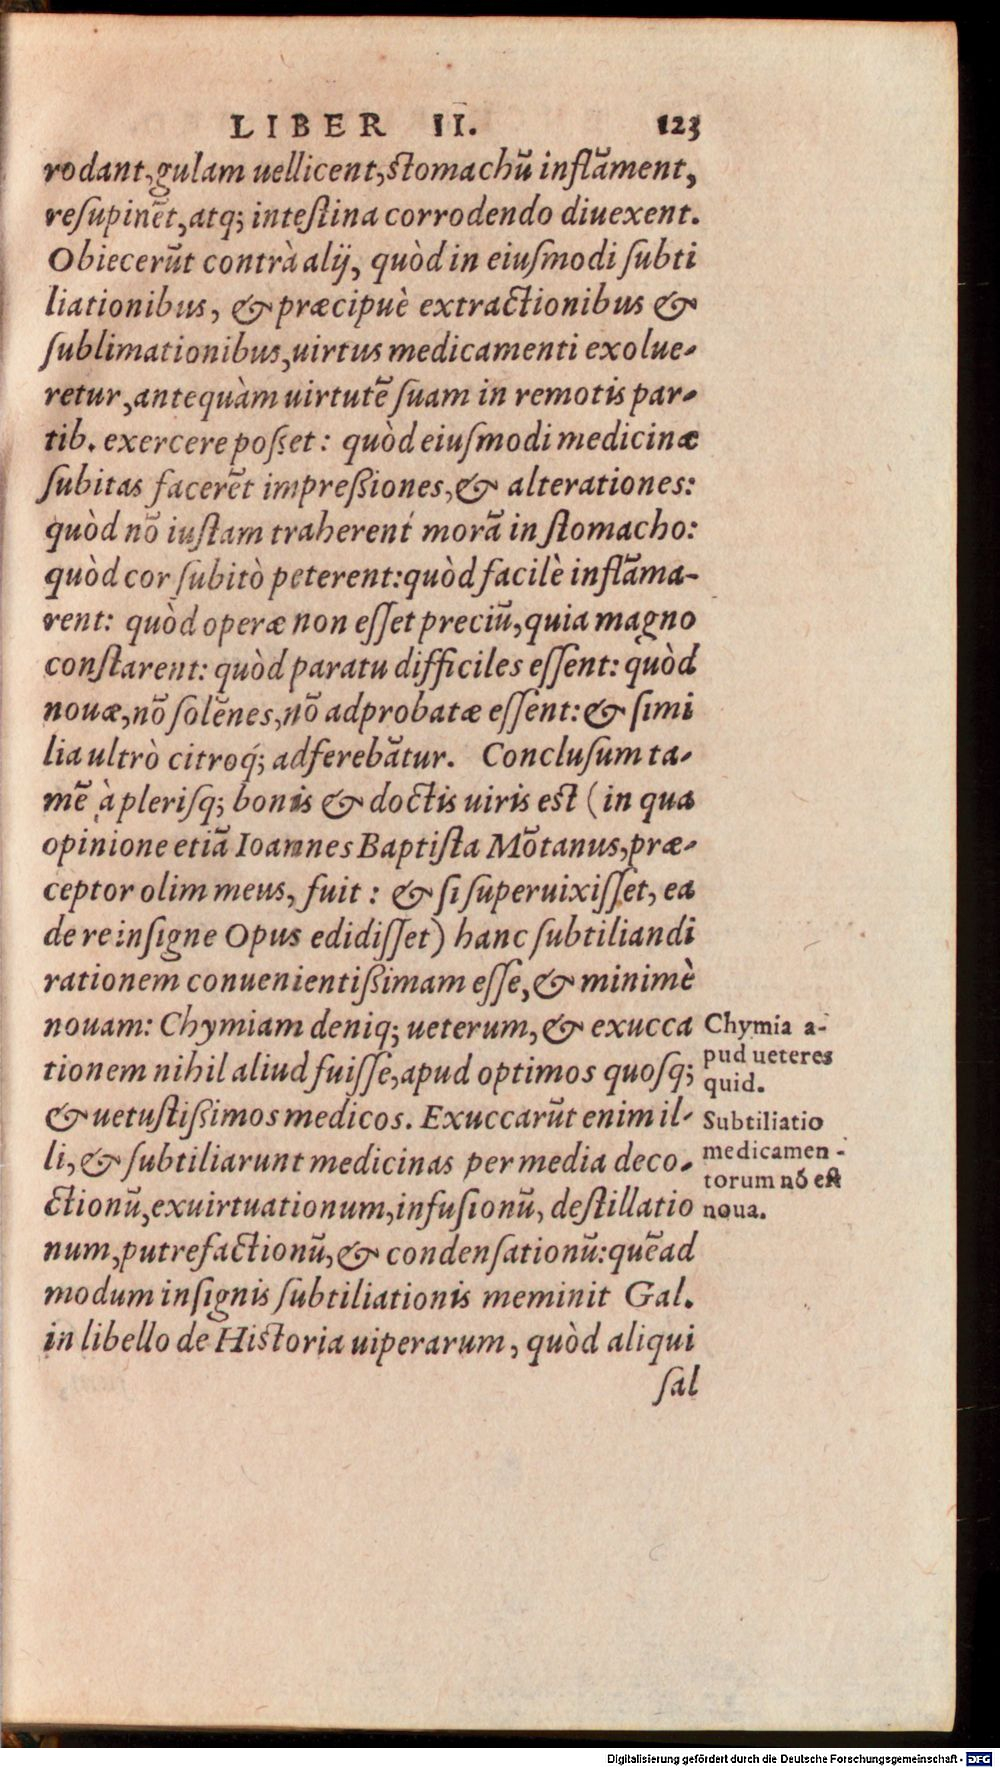 LIBER II. 123
rodant, gulam uellicent, stomachũ inflãment,
resupinẽt, atq; intestina corrodendo diuexent.
Obiecerũt contrà alij, quòd in eiusmodi subti
liationibus, & præcipuè extractionibus &
sublimationibus, uirtus medicamenti exolue-
retur, antequàm uirtutẽ suam in remotis par-
tib. exercere posset: quòd eiusmodi medicinæ
subitas facerẽt impreßiones, & alterationes:
quòd nõ iustam traherent morã in stomacho:
quòd cor subitò peterent: quòd facilè inflãma-
rent: quòd operæ non esset preciũ, quia magno
constarent: quòd paratu difficiles essent: quòd
nouæ, nõ solẽnes, nõ adprobatæ essent: & simi
lia ultrò citroq́; adferebãtur. Conclusum ta-
mẽ à plerisq; bonis & doctis uiris est (in qua
opinione etiã Ioannes Baptista Mõtanus, præ-
ceptor olim meus, fuit: & si superuixisset, ea
de re insigne Opus edidisset) hanc subtiliandi
rationem conuenientißimam esse, & minimè
nouam: Chymiam deniq; ueterum, & exucca
tionem nihil aliud fuisse, apud optimos quosq;
& uetustißimos medicos. Exuccarũt enim il-
li, & subtiliarunt medicinas per media deco-
ctionũ, exuirtuationum, infusionũ, destillatio
num, putrefactionũ, & condensationũ: quẽad
modum insignis subtiliationis meminit Gal.
in libello de Historia uiperarum, quòd aliqui
sal
Chymia a-
pud ueteres
quid.
Subtiliatio
medicamen-
torum nõ est
noua.
Digitalisierung gefördert durch die Deutsche Forschungsgemeinschaft - DFG